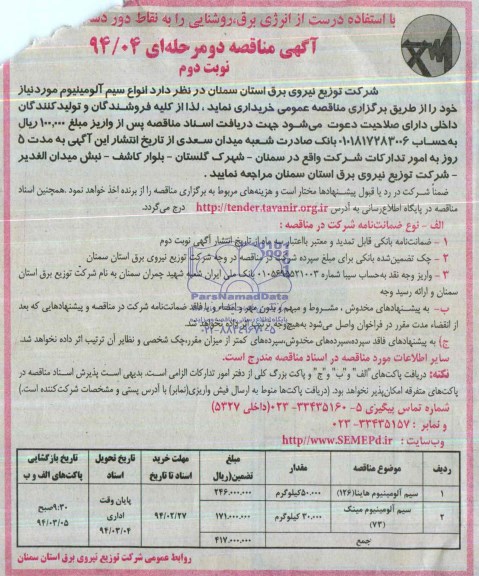 با استفاده درست از انرژی برق،روشنایی را به نقاط دور دست
آگهی مناقصه دومرحله‌ای ۹۴/۰۴
نوبت دوم
شرکت توزیع نیروی برق استان سمنان در نظر دارد انواع سیم آلومینیوم موردنیاز
خود را از طریق برگزاری مناقصه عمومی خریداری نماید ، لذا از کلیه فروشندگان و تولیدکنندگان
داخلی دارای صلاحیت دعوت می‌شود جهت دریافت اسناد مناقصه پس از واریز مبلغ ۱۰۰,۰۰۰ ریال
به‌حساب ۰۱۰۸۱۷۲۸۳۰۰۶ بانک صادرت شعبه میدان سعدی از تاریخ انتشار این آگهی به مدت ۵
روز به امور تدارکات شرکت واقع در سمنان - شهرک گلستان - بلوار کاشف - نبش میدان الغدیر
- شرکت توزیع نیروی برق استان سمنان مراجعه نمایید .
ضمناً شرکت در رد یا قبول پیشنهادها مختار است و هزینه‌های مربوط به برگزاری مناقصه را از برنده اخذ خواهد نمود .همچنین اسناد
مناقصه در پایگاه اطلاع‌رسانی به آدرس http://tender.tavanir.org.ir درج می‌گردد.
الف - نوع ضمانت‌نامه شرکت در مناقصه :
۱ - ضمانت‌نامه بانکی قابل تمدید و معتبر بااعتبار سه ماه از تاریخ انتشار آگهی نوبت دوم
۲ - چک تضمین‌شده بانکی برای مبلغ سپرده شرکت در مناقصه در وجه شرکت توزیع نیروی برق استان سمنان
۳ - واریز وجه نقد به‌حساب سیبا شماره بانک ملی ایران شعبه شهید چمران سمنان به نام شرکت توزیع برق استان
سمنان و ارائه رسید وجه
ب- به پیشنهادهای مخدوش ، مشروط و مبهم و بدون مهر و امضاء و یا فاقد ضمانت‌نامه شرکت در مناقصه و پیشنهادهایی که بعد
از انقضاء مدت مقرر در فراخوان واصل می‌شود به‌هیچ‌وجه ترتیب اثر داده نخواهد شد.
ج) به پیشنهادهای فاقد سپرده،سپرده‌های مخدوش،سپرده‌های کمتر از میزان مقرر،چک شخصی و نظایر آن ترتیب اثر داده نخواهد شد.
سایر اطلاعات مورد مناقصه در اسناد مناقصه مندرج است.
نکته: دریافت پاکت‌های"الف" و"ب" و"ج" و پاکت بزرگ کلی از دفتر امور تدارکات الزامی است. بدیهی است پذیرش اسناد مناقصه در
پاکت‌های متفرقه امکان‌پذیر نخواهد بود. (دریافت پاکت‌ها منوط به ارسال فیش واریزی(نمابر) با آدرس پستی و مشخصات شرکت‌کننده است.)
شماره تماس پیگیری ۵- ۳۳۴۳۵۱۶۰-۰۲۳(داخلی ۵۳۲۷)
و نمابر : ۳۳۴۳۵۱۵۷-۰۲۳
وب‌سایت : http//www.SEMEPd.ir
ParsNamadData
پایگاه اطلاع رسانی مناقصه و مزایده
۰۲۱-۸۸۳۴۹۶۷۰-۵
ردیف موضوع مناقصه مقدار مبلغ تضمین(ریال مهلت خرید اسناد تا تاریخ تاریخ تحویل اسناد تاریخ بازگشایی پاکت‌های الف و ب
۱ سیم آلومینیوم هاینا(۱۲۶) ۵۰,۰۰۰کیلوگرم ۲۴۶,۰۰۰,۰۰۰ ۹۴/۰۲/۲۷ پایان وقت اداری ۹۴/۰۳/۰۴ ۹:۳۰صبح ۹۴/۰۳/۰۵
۲ سیم آلومینیوم مینک (۷۳) ۳۰,۰۰۰ کیلوگرم ۱۷۱,۰۰۰,۰۰۰
جمع ۴۱۷,۰۰۰,۰۰۰
روابط عمومی شرکت توزیع نیروی برق استان سمنان